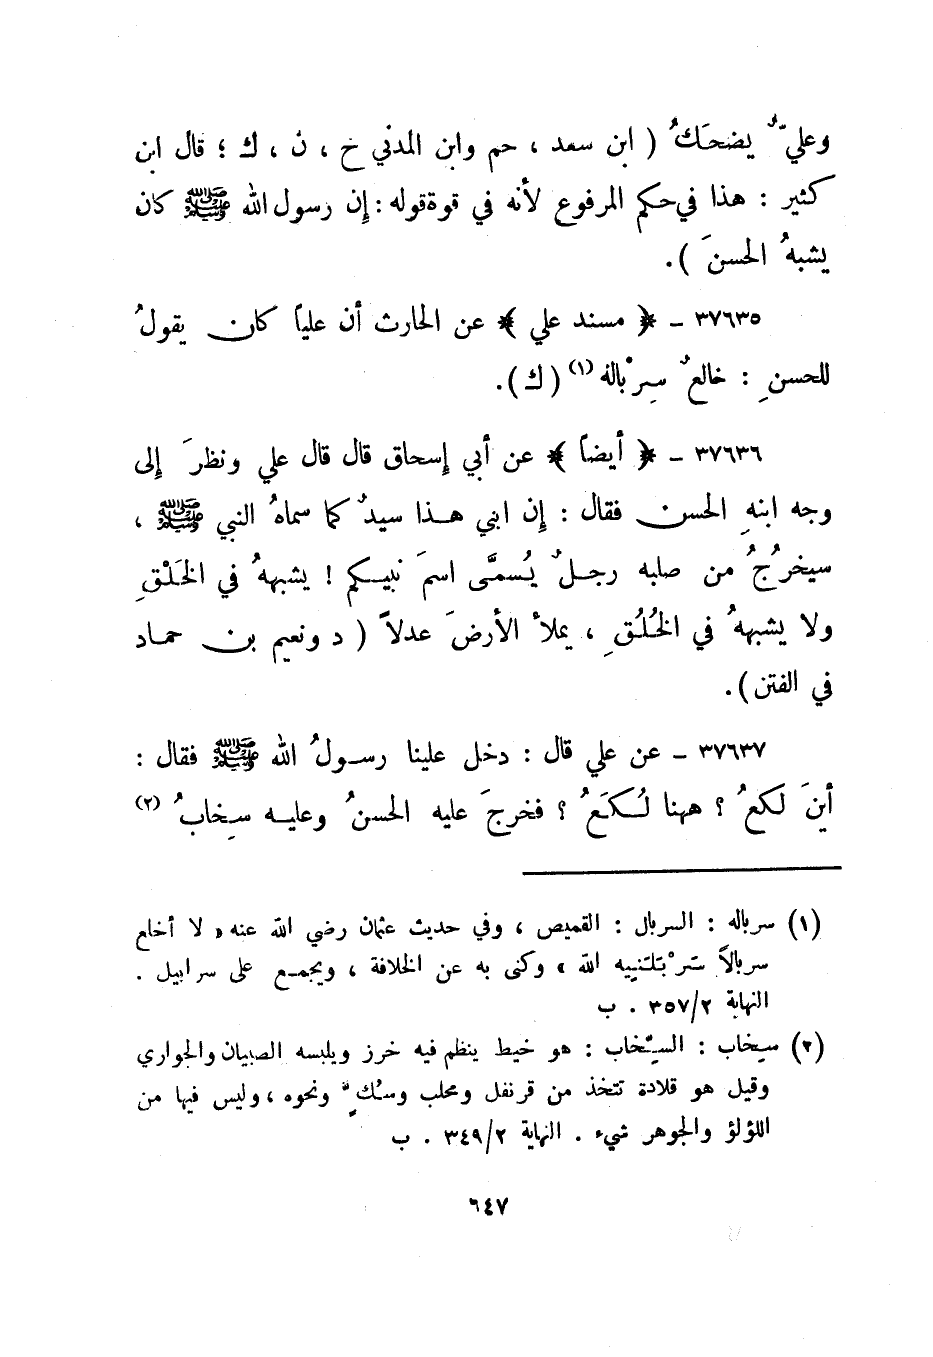 وعليٌّ يضحَكُ ( ابن سعد ، حم وابن المدني خ ، ن ، ك ؛ قال ابن
كثير : هذا في حكم المرفوع لأنه في قوة قوله : إن رسول الله ﷺ كان
يشبهُ الحسنَ ) .
٣٧٦٣٥ ـ ﴿ مسند علي ﴾ عن الحارث أن علياً كان يقولُ
للحسنِ : خالعٌ سِرْباله (١) ( ك ) .
٣٧٦٣٦ ـ ﴿ أيضاً ﴾ عن أبي إسحاق قال قال علي ونظرَ إلى
وجه ابنهِ الحسن فقال : إن ابني هذا سيدٌ كما سماهُ النبي ﷺ ،
سيخرُجُ من صلبه رجلٌ يُسمَّى اسمَ نبيكم ! يشبههُ في الخَلْقِ
ولا يشبههُ في الخُلُقِ ، يملأ الأرضَ عدلاً ( د ونعيم بن حماد
في الفتن ) .
٣٧٦٣٧ ـ عن علي قال : دخل علينا رسولُ الله ﷺ فقال :
أينَ لكعُ ؟ ههنا لُكَعُ ؟ فخرجَ عليه الحسنُ وعليه سِخابُ (٢)
(١) سرباله : السربال : القميص ، وفي حديث عثمان رضي الله عنه « لا أخلع
سربالاً سَرْبَلَنيه الله » وكنى به عن الخلافة ، ويجمع على سرابيل .
النهاية ٣٥٧/٢ . ب
(٢) سِخاب : السِّخاب : هو خيط ينظم فيه خرز ويلبسه الصبيان والجواري
وقيل هو قلادة تتخذ من قرنفل ومحلب وسُكٍّ ونحوه ، وليس فيها من
اللؤلؤ والجوهر شيء . النهاية ٣٤٩/٢ . ب
٦٤٧